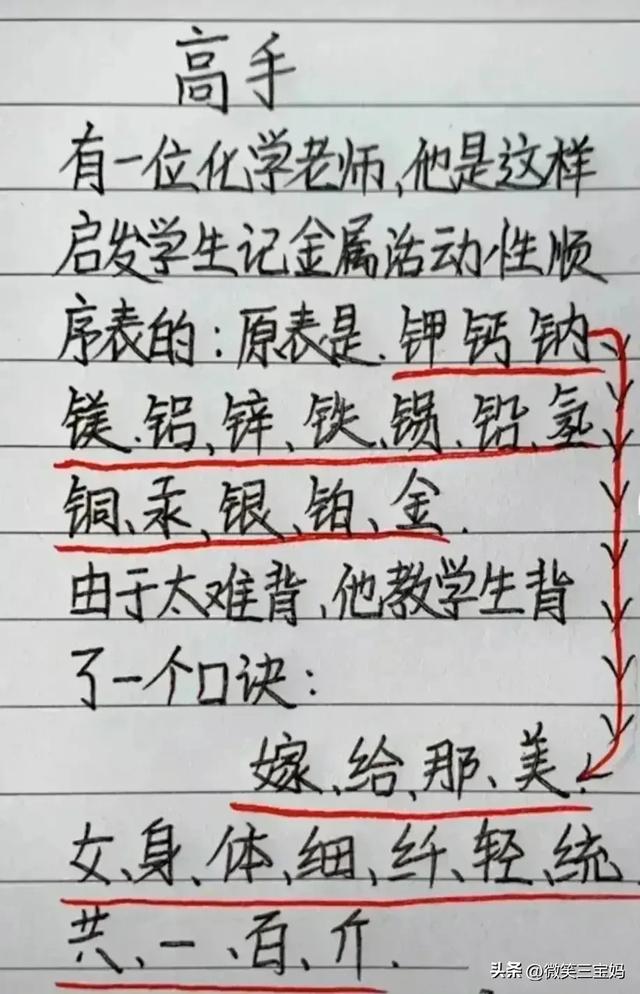 高手
有一位化学老师,他是这样
启发学生记金属活动性顺
序表的:原表是.钾钙钠、
镁.铝、锌、铁、锡.铅、氢
铜、汞、银、铂、金.
由于太难背,他教学生背
了一个口诀:
嫁、给、那、美.
女、身、体、细、纤、轻、统
共、一、百、斤.
头条 @微笑三宝妈